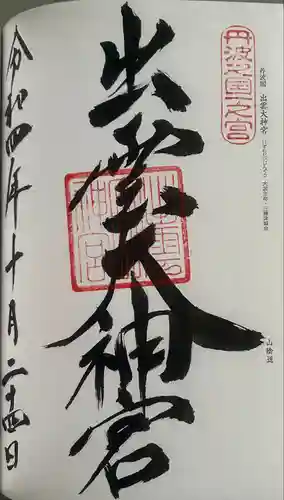 丹波國一之宮
丹波國 出雲大神宮
山陰道
出雲大神宮
令和四年十月二十四日